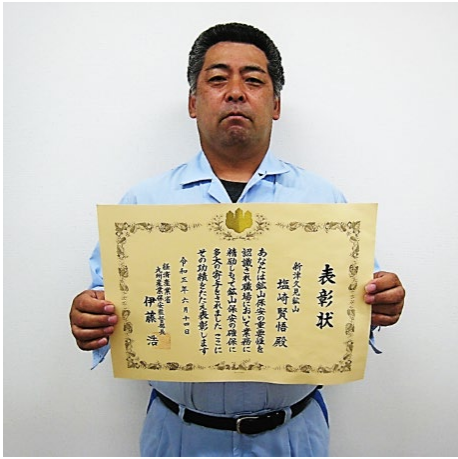 表彰状
新津久見鉱山
塩崎賢悟殿
あなたは鉱山保安の重要性を
認識され職場において業務に
精励しもって鉱山保安の確保に
多大の寄与をされました ここに
その功績をたたえ表彰します
令和三年六月十四日
経済産業省
九州産業保安監督部長
伊藤浩